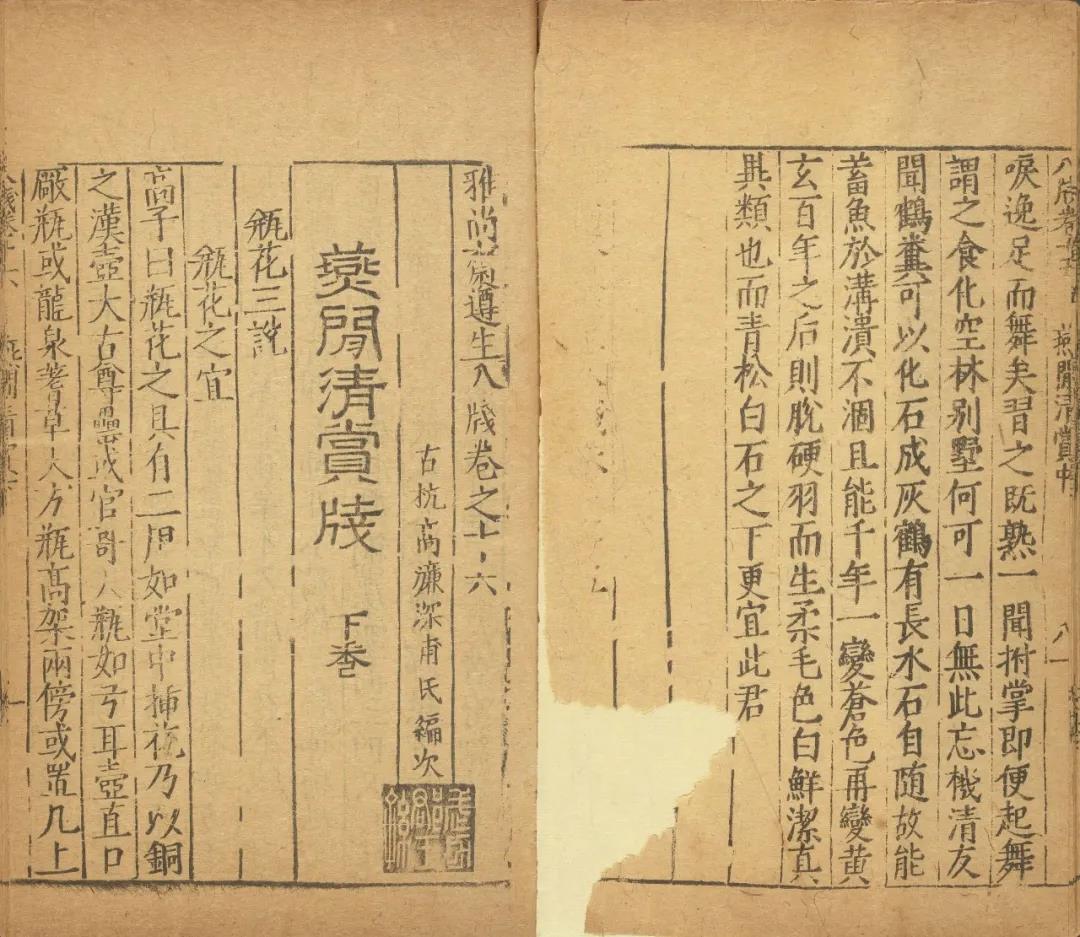 唳逸足而舞矣習之既熟一聞拊掌即便起舞
謂之食化空林别墅何可一日無此忘機清友
聞鶴糞可以化石成灰鶴有長水石自随故能
蓄魚於溝瀆不涸且能千年一變蒼色再變黄
玄百年之后則脫硬羽而生柔毛色白鮮潔真
異類也而青松白石之下更宜此君
雅尚齋遵生八牋卷之十六
古杭高濂深甫氏編次
燕閒清賞牋 下卷
瓶花三說
瓶花之宜
高子曰瓶花之具有二用如堂中插花乃以銅
之漢壺大古尊罍或官哥大瓶如弓耳壺直口
厰瓶或龍泉蓍草大方瓶高架兩傍或置几上